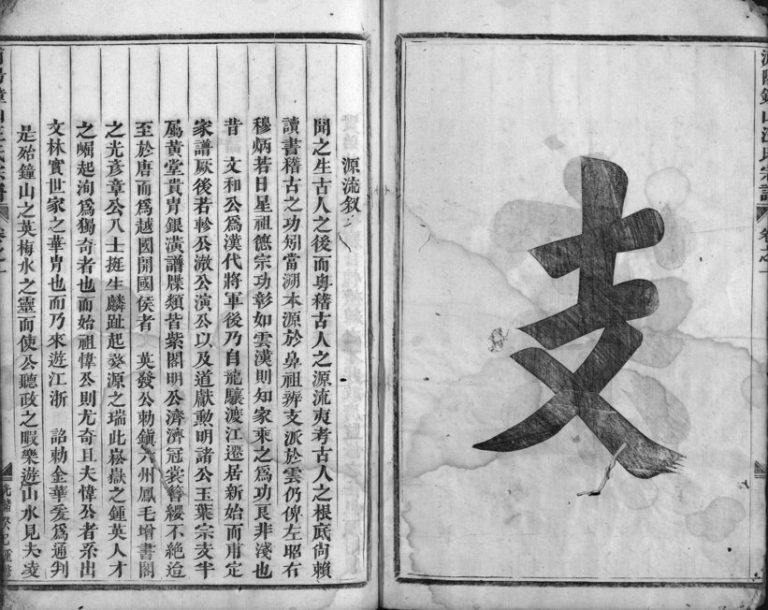 支
浦陽鐘山汪氏宗譜 卷之一
源流叙
聞之生古人之後而粤稽古人之源流夷考古人之根底尙賴
讀書稽古之功矧當溯本源於鼻祖辨支派於雲仍俾左昭右
穆炳若日星祖德宗功彰如雲漢則知家乘之爲功良非淺也
昔 文和公爲漢代將軍後乃自龍驤渡江遷居新始而甫定
家譜厥後若軫公澈公演公以及道獻勲明諸公玉葉宗支半
屬黃堂貴冑銀潢譜牒類皆紫閣明公濟濟冠裳簪纓不絶迨
至於唐而爲越國開國侯者 英發公勅鎭六州鳳毛增書閣
之光彥章公八士挺生麟趾起婺源之瑞此崧嶽之鍾英人才
之崛起洵爲獨奇者也而始祖偉公則尤奇且夫偉公者系出
文林實世家之華冑也而乃來遊江浙 詔勅金華爰爲通判
是殆鐘山之英梅水之靈而使公聽政之暇樂遊山水見夫凌